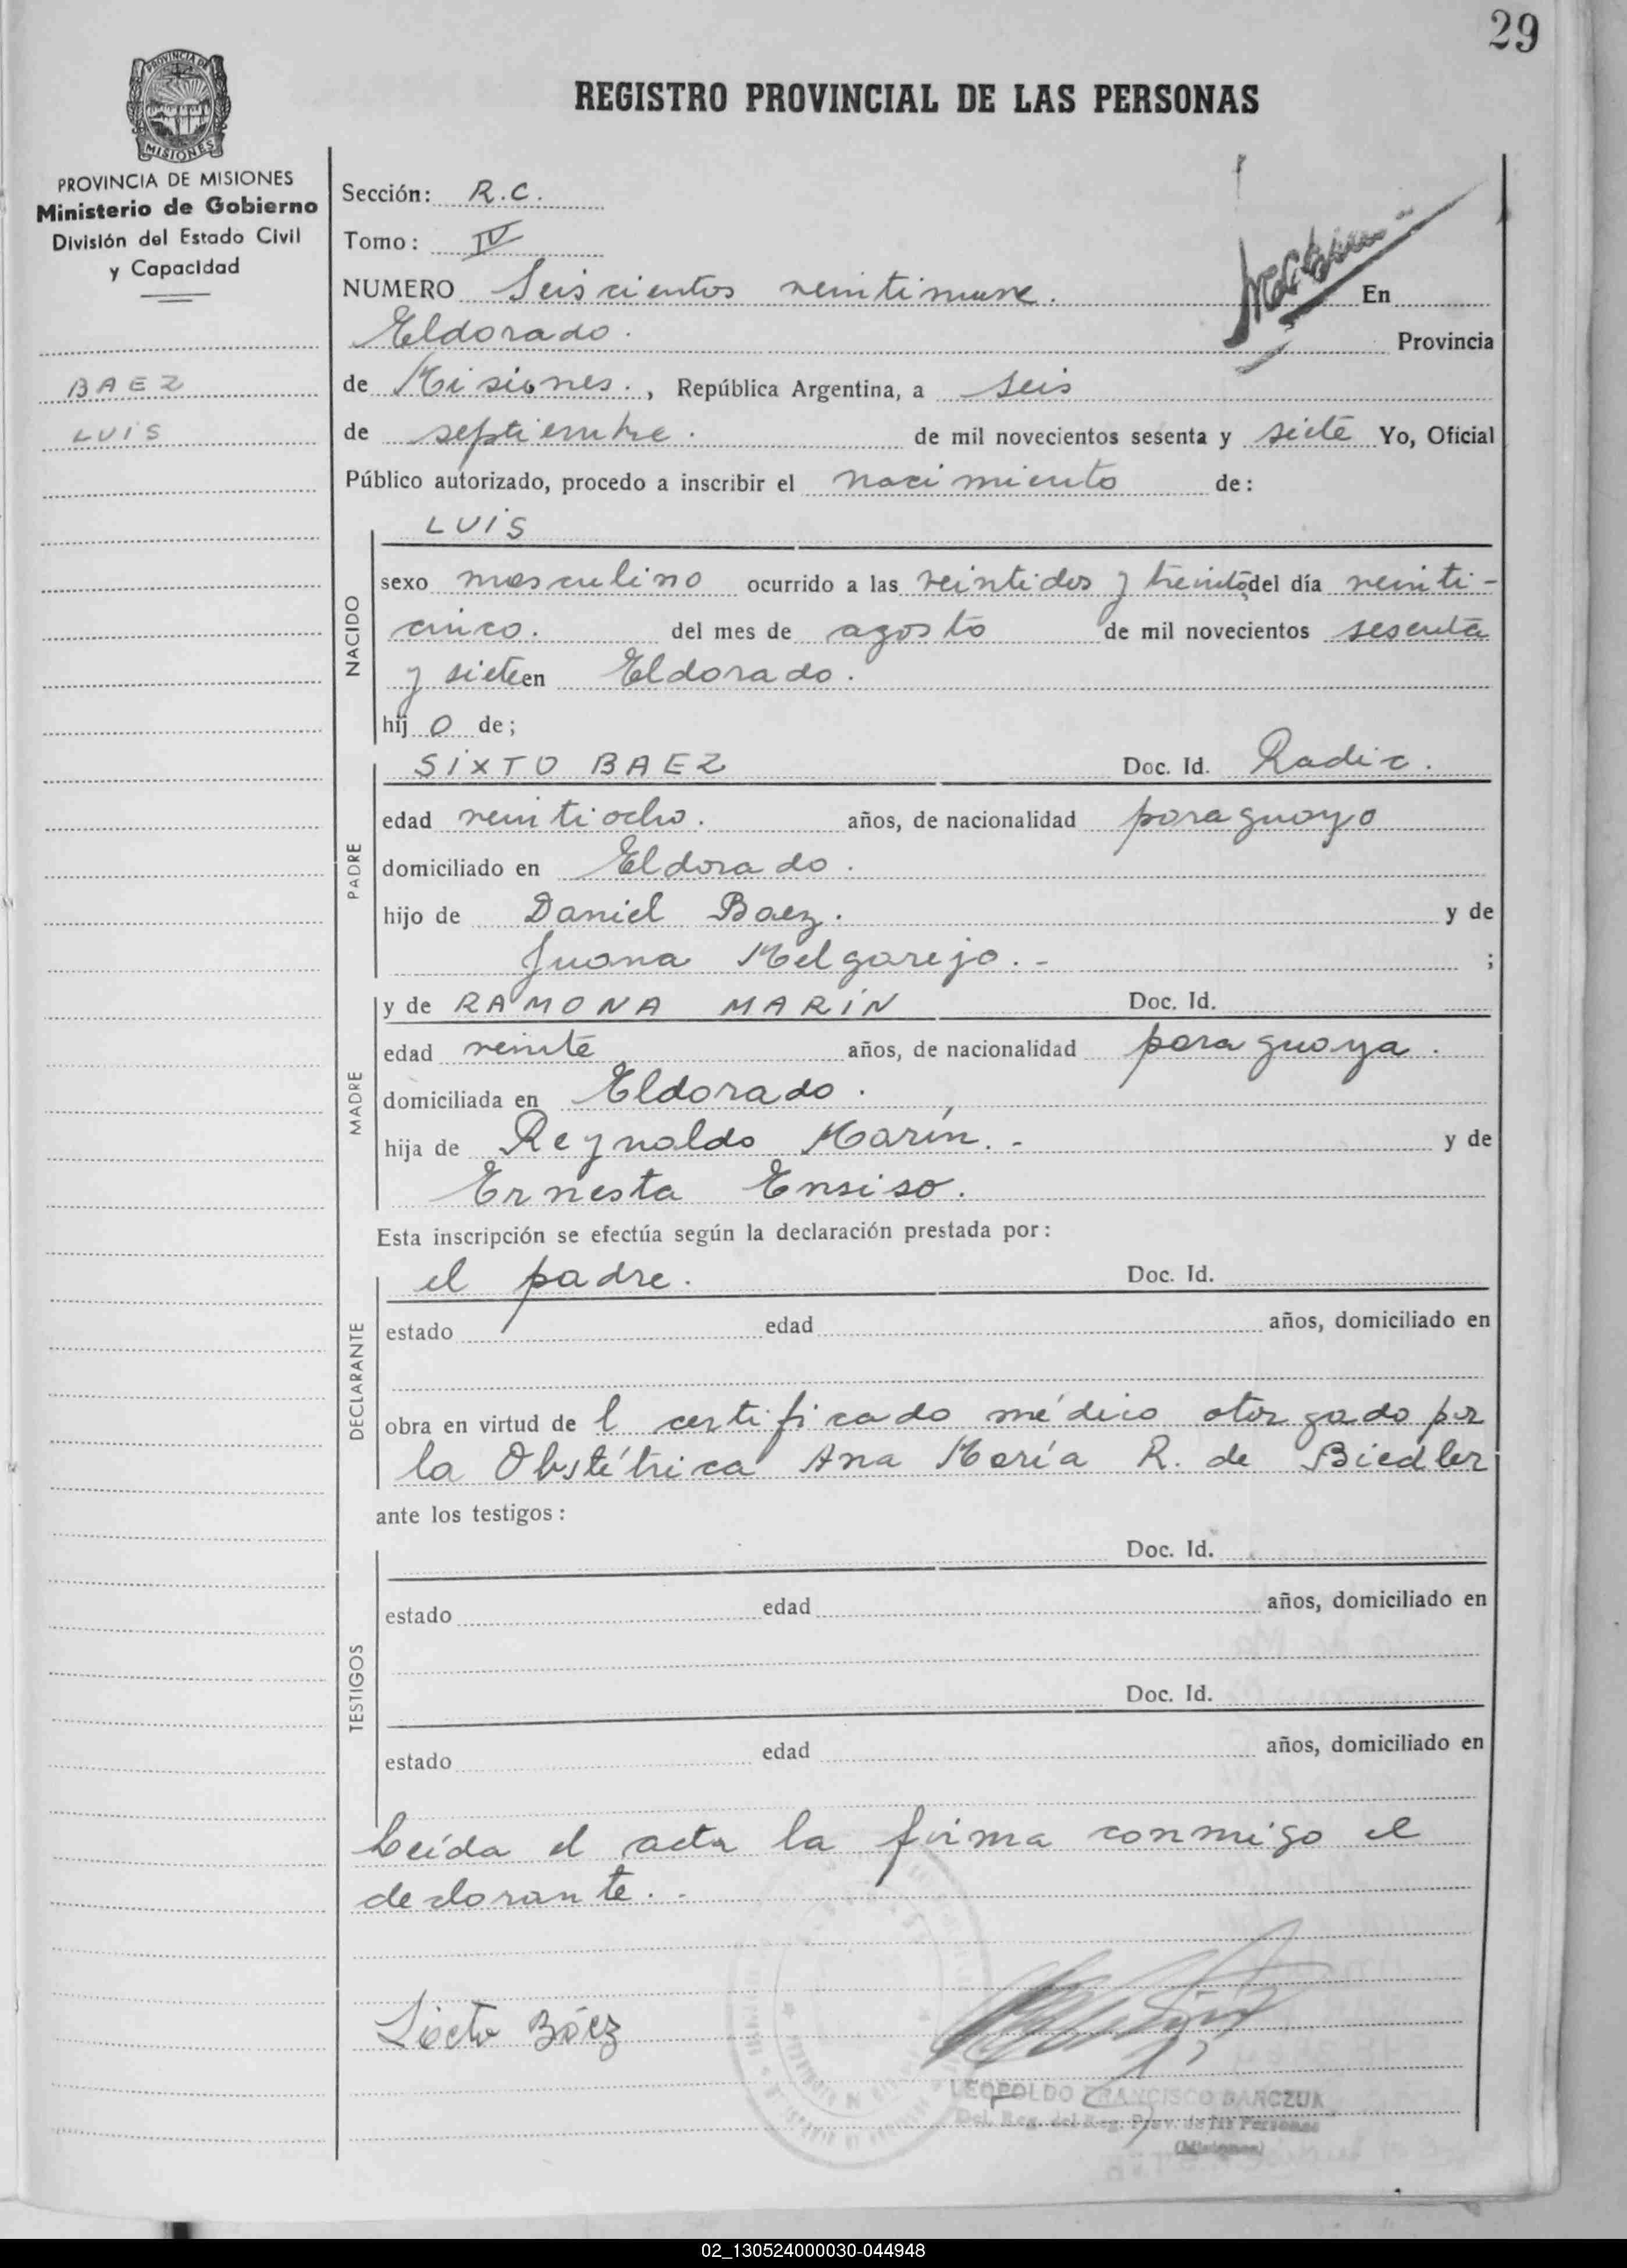 29
PROVINCIA DE
MISIONES
REGISTRO PROVINCIAL DE LAS PERSONAS
PROVINCIA DE MISIONES
Ministerio de Gobierno
División del Estado Civil
y Capacidad
BAEZ
LUIS
Sección: R.C.
Tomo: IV
NUMERO Seiscientos veintinueve. En
Eldorado. Provincia
de Misiones., República Argentina, a seis
de septiembre. de mil novecientos sesenta y siete Yo, Oficial
Público autorizado, procedo a inscribir el nacimiento de:
LUIS
NACIDO
sexo masculino ocurrido a las veintidos y treinta del día veinti-
cinco. del mes de agosto de mil novecientos sesenta
y siete en Eldorado.
hijo de;
PADRE
SIXTO BAEZ Doc. Id. Radic.
edad veintiocho. años, de nacionalidad paraguayo
domiciliado en Eldorado.
hijo de Daniel Baez. y de
Juana Melgarejo.- ;
MADRE
y de RAMONA MARIN Doc. Id.
edad veinte años, de nacionalidad paraguaya.
domiciliada en Eldorado.
hija de Reynaldo Marín.- y de
Ernesta Ensiso.
Esta inscripción se efectúa según la declaración prestada por:
DECLARANTE
el padre. Doc. Id.
estado edad años, domiciliado en
obra en virtud del certificado médico otorgado por
la Obstétrica Ana María R. de Biedler
ante los testigos:
TESTIGOS
Doc. Id.
estado edad años, domiciliado en
Doc. Id.
estado edad años, domiciliado en
Leída el acta la firma conmigo el
declarante.-
Sixto Báez
LEOPOLDO FRANCISCO BARCZUK
Del. Reg. del Reg. Prov. de las Personas
(Misiones)
02_130524000030-044948